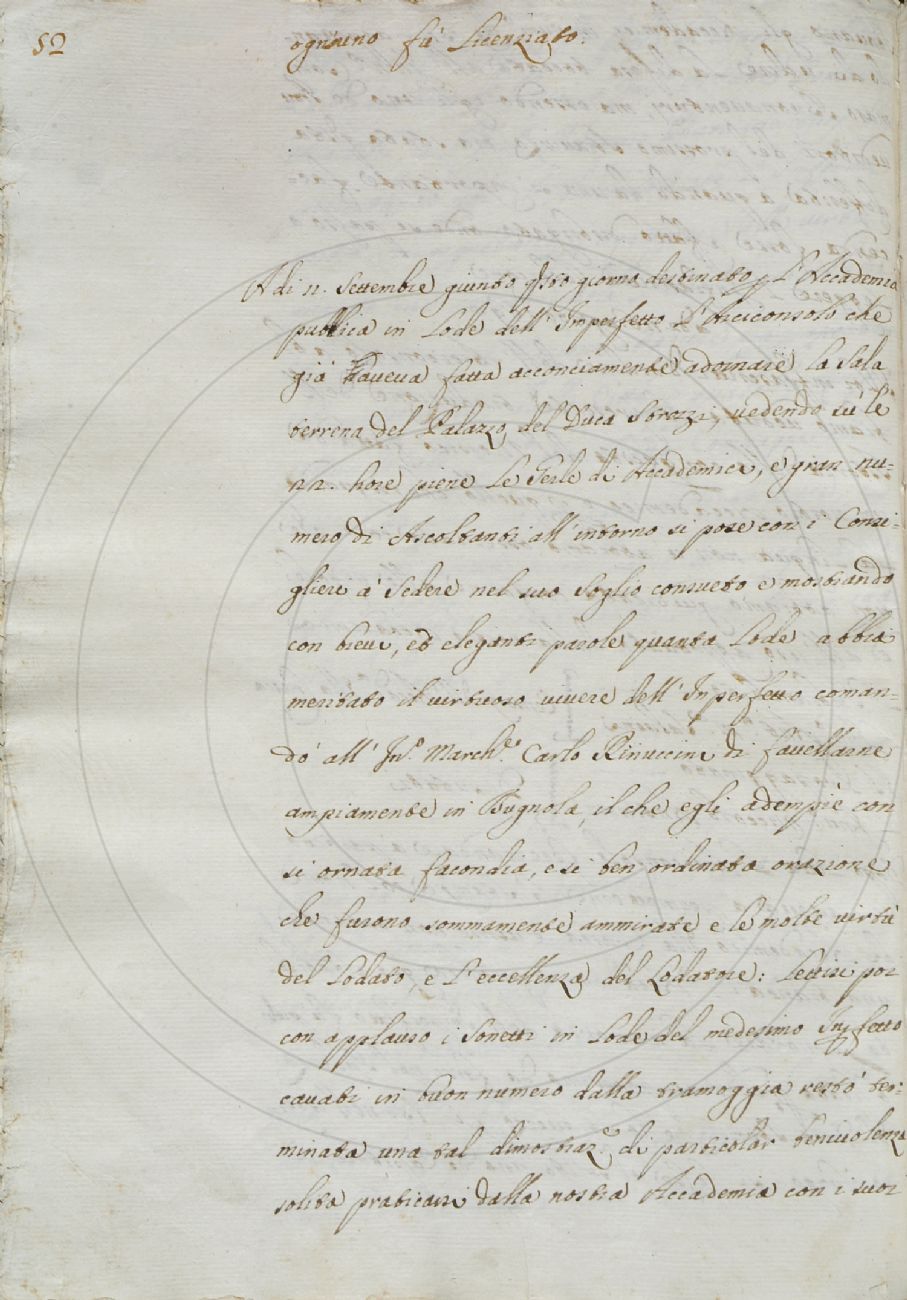 52
ognuno fù Licenziato.
A di 11. Settembre giunto q.sto giorno destinato p L'Accademia
publica in Lode dell'Imperfetto L'Arciconsolo che
già haueua fatta acconciamente adornare la Sala
terrena del Palazzo del Duca Strozzi, uedendo sù le
22. hore piene Le Gerle di Accademici, e gran nu=
mero di Ascoltanti all'intorno si pose con i Consi=
glieri à Sedere nel suo Soglio consueto e mostrando
con breui, ed eleganti parole quanta Lode abbia
meritato il virtuoso uiuere dell'Inperfetto coman=
dò all'In.o March.e Carlo Rinuccini di fauellarne
ampiamente in Bugnola, il che egli adempiè con
si ornata facondia, e si ben ordinata orazione
che furono sommamente ammirate e le molte uirtù
del Lodato, e L'eccellenza del Lodatore: Lettisi poi
con applauso i Sonetti in Lode del medesimo Inpfetto
cauati in buon numero dalla tramoggia restò ter=
minata una tal dimostraz.e di particolar beniuolenza
solita praticarsi dalla nostra Accademia con i suoi